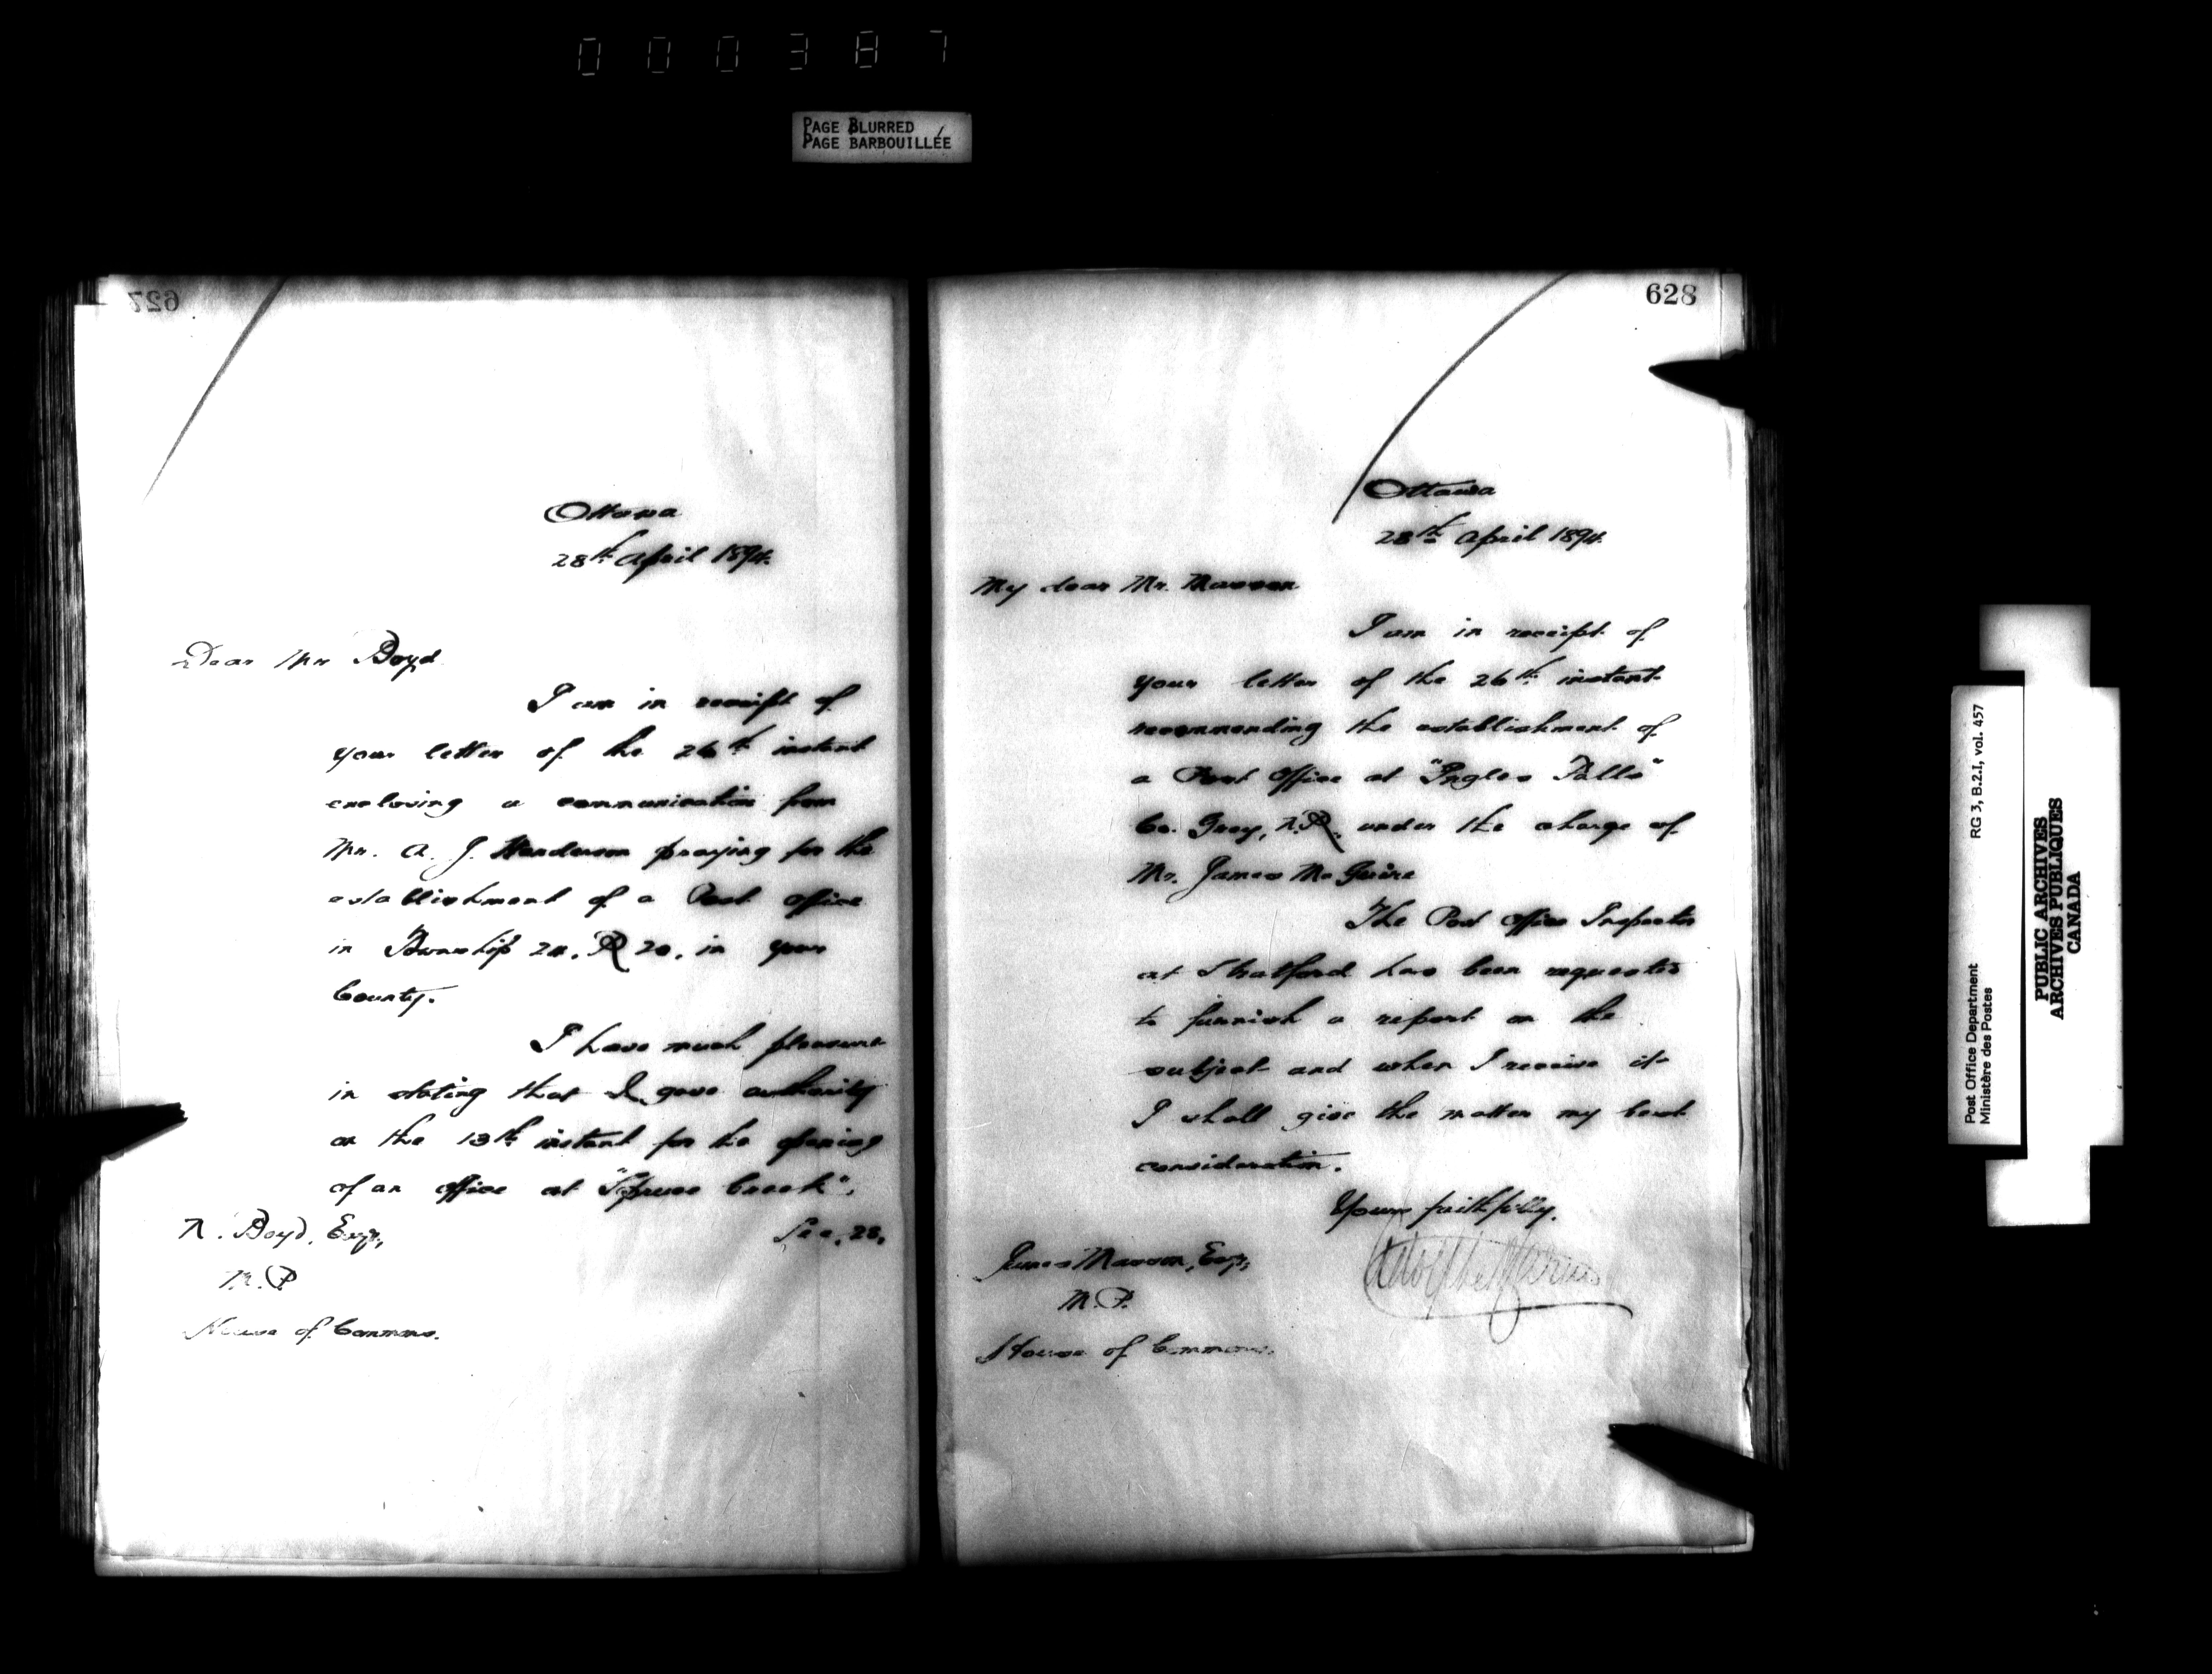 000387
PAGE BLURRED
PAGE BARBOUILLÉE
627
Ottawa
28th April 1894.
Dear Mr Boyd
I am in receipt of
your letter of the 26th instant
enclosing a communication from
Mr. A. J. Henderson praying for the
establishment of a Post Office
in Township 24, R 20, in your
County.
I have much pleasure
in stating that I gave authority
on the 13th instant for the opening
of an office at "Spruce Creek",
Sec. 28,
N. Boyd, Esqr,
M.P
House of Commons.
628
Ottawa
28th April 1894.
My dear Mr. Masson
I am in receipt of
your letter of the 26th instant
recommending the establishment of
a Post Office at "Ingles Falls"
Co. Grey, N.R, under the charge of
Mr. James McGuire
The Post Office Inspector
at Stratford has been requested
to furnish a report on the
subject and when I receive it
I shall give the matter my best
consideration.
Yours faithfully.
Adolphe Caron
James Masson, Esqr,
M.P.
House of Commons.
Post Office Department
Ministère des Postes
RG 3, B.2.I, vol. 457
PUBLIC ARCHIVES
ARCHIVES PUBLIQUES
CANADA